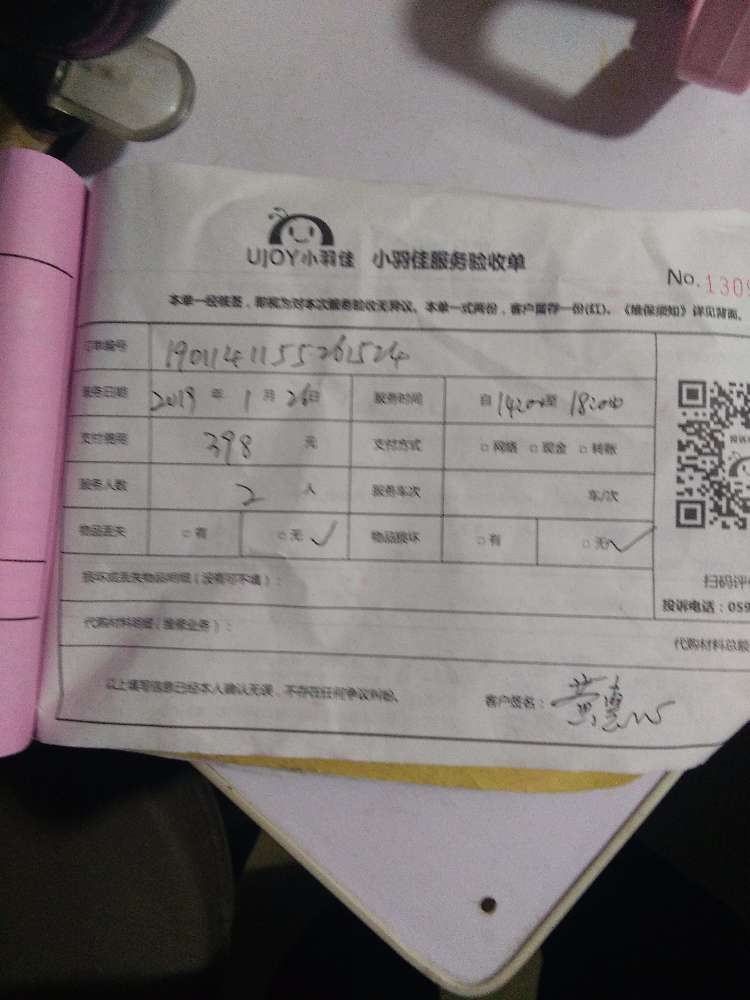 UJOY小羽佳 小羽佳服务验收单
No. 1309
本单一经核签，即视为对本次服务验收无异议。本单一式两份，客户留存一份(红)。《维保须知》详见背面。
订单编号 1901141155261524
服务日期 2019 年 1 月 26日 服务时间 自 14:00至 18:00
支付费用 398 元 支付方式 □网络 □现金 □转账
服务人数 2 人 服务车次 车/次
物品丢失 □有 □无✓ 物品损坏 □有 □无✓
扫码评价
损坏或丢失物品明细(没有可不填)：
投诉电话：059
代购材料明细(维修业务)：
代购材料总额
以上填写信息已经本人确认无误，不存在任何争议纠纷。 客户签名：黄惠